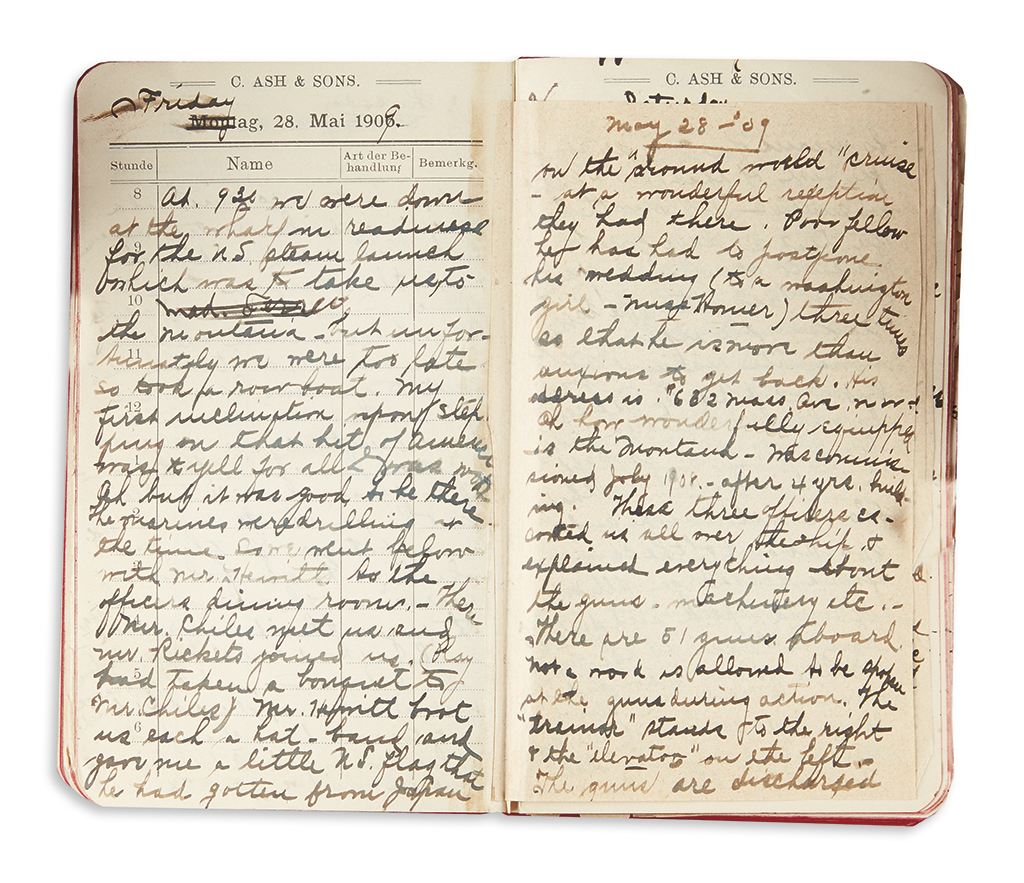 C. ASH & SONS.
Friday
Montag, 28. Mai 1909.
Stunde Name Art der Be- Bemerkg.
handlung
8 At 9 30 we were down
at the wharf in readiness
9 for the U.S. steam launch
which was to take us to
10
the Montana - but unfor-
11 tunately we were too late
so took a row boat. My
12 first inclination upon step-
ping on that bit of America
was to yell for all I was worth
Oh but it was good to be there
2 The marines were drilling at
the time. So we went below
3 with Mr. Hewitt to the
officers dining room. - There
4 Mr. Chiles met us and
Mr. Rickets joined us. (Ray
5 had taken a bouquet to
Mr. Chiles) Mr. Hewitt brot
6 us each a hat-band and
gave me a little U.S. flag that
he had gotten from Japan
C. ASH & SONS.
Saturday
May 28 - '09
on the "around world" cruise
- at a wonderful reception
they had there. Poor fellow
he has had to postpone
his wedding (to a Washington
girl - Miss Homer) three times
so that he is more than
anxious to get back. His
adress is "632 Mass Ave. N.W.
Oh how wonderfully equipped
is the Montana - was commis-
sioned July 1908. - after 4 yrs. buil-
ing. These three officers es-
corted us all over the ship, &
explained everything about
the guns - machinery etc. -
There are 51 guns aboard
Not a word is allowed to be spoken
at the guns during action. The
"trainor" stands to the right
& the "elevator" on the left. -
The guns are discharged